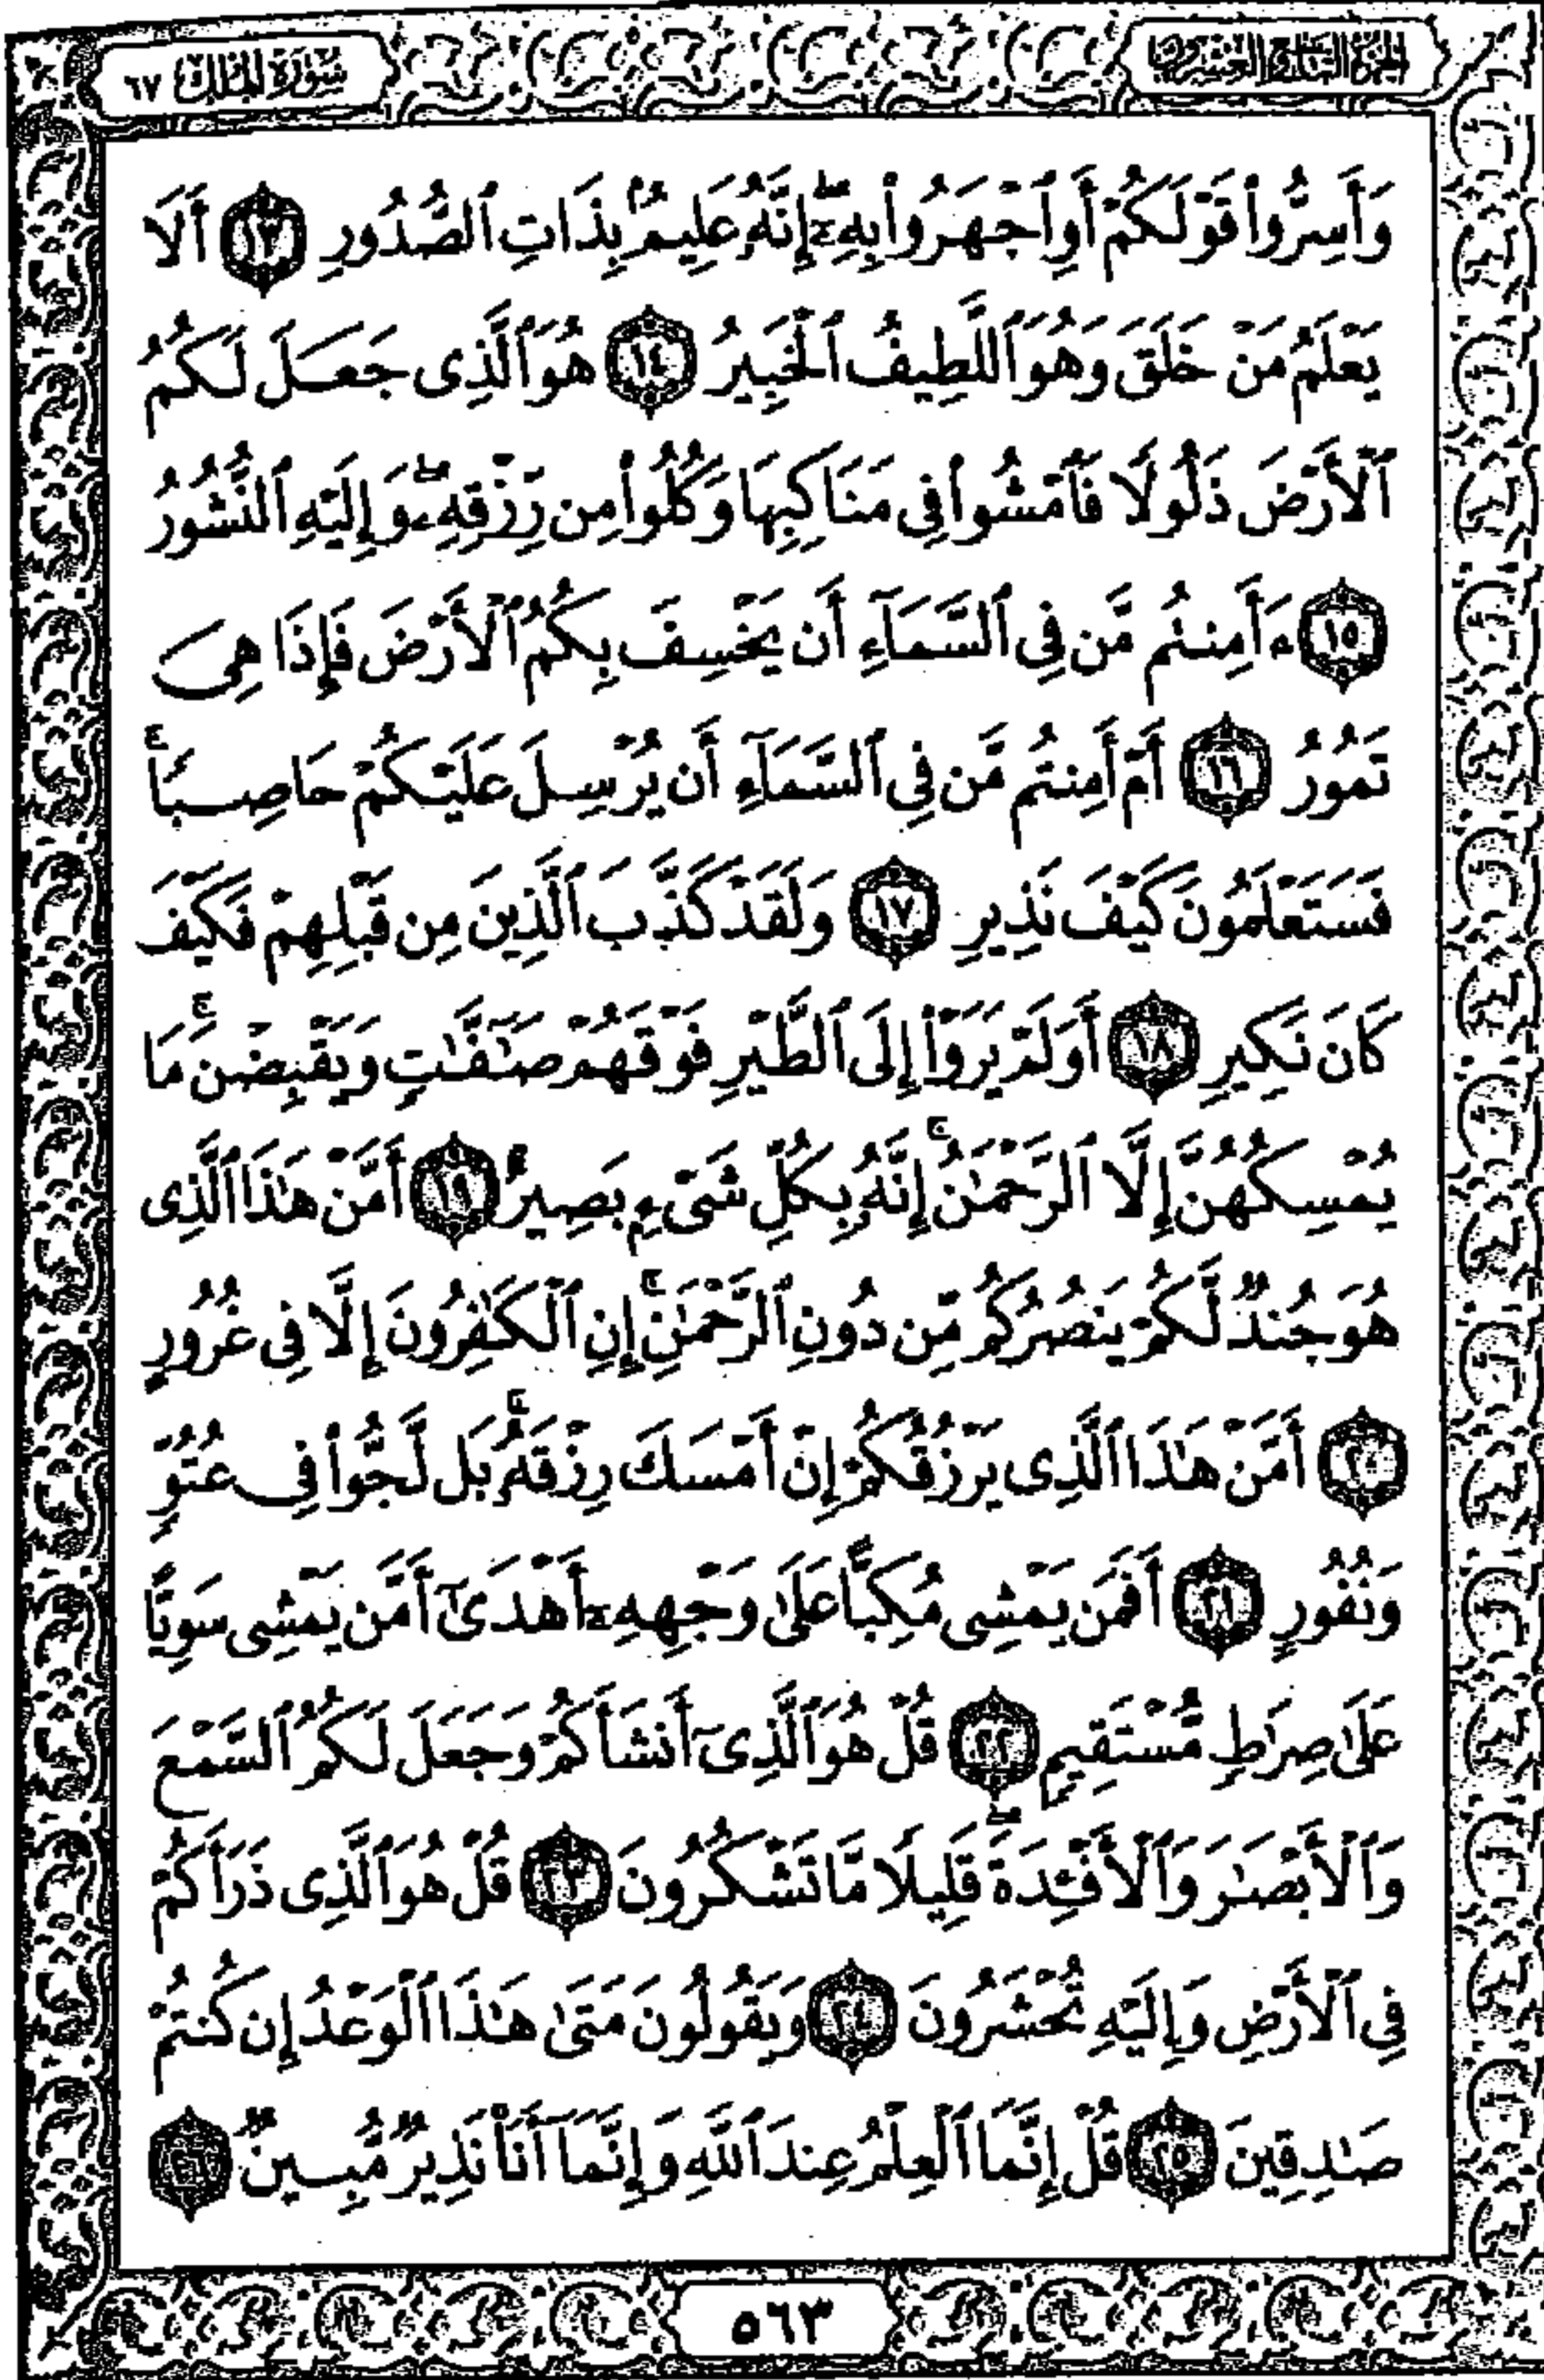 الجزء التاسع والعشرون
سورة الملك ٦٧
وَأَسِرُّوا۟ قَوْلَكُمْ أَوِ ٱجْهَرُوا۟ بِهِۦٓ ۖ إِنَّهُۥ عَلِيمٌۢ بِذَاتِ ٱلصُّدُورِ ١٣ أَلَا
يَعْلَمُ مَنْ خَلَقَ وَهُوَ ٱللَّطِيفُ ٱلْخَبِيرُ ١٤ هُوَ ٱلَّذِى جَعَلَ لَكُمُ
ٱلْأَرْضَ ذَلُولًا فَٱمْشُوا۟ فِى مَنَاكِبِهَا وَكُلُوا۟ مِن رِّزْقِهِۦ ۖ وَإِلَيْهِ ٱلنُّشُورُ
١٥ ءَأَمِنتُم مَّن فِى ٱلسَّمَآءِ أَن يَخْسِفَ بِكُمُ ٱلْأَرْضَ فَإِذَا هِىَ
تَمُورُ ١٦ أَمْ أَمِنتُم مَّن فِى ٱلسَّمَآءِ أَن يُرْسِلَ عَلَيْكُمْ حَاصِبًا ۖ
فَسَتَعْلَمُونَ كَيْفَ نَذِيرِ ١٧ وَلَقَدْ كَذَّبَ ٱلَّذِينَ مِن قَبْلِهِمْ فَكَيْفَ
كَانَ نَكِيرِ ١٨ أَوَلَمْ يَرَوْا۟ إِلَى ٱلطَّيْرِ فَوْقَهُمْ صَٰٓفَّٰتٍ وَيَقْبِضْنَ ۚ مَا
يُمْسِكُهُنَّ إِلَّا ٱلرَّحْمَٰنُ ۚ إِنَّهُۥ بِكُلِّ شَىْءٍۭ بَصِيرٌ ١٩ أَمَّنْ هَٰذَا ٱلَّذِى
هُوَ جُندٌ لَّكُمْ يَنصُرُكُم مِّن دُونِ ٱلرَّحْمَٰنِ ۚ إِنِ ٱلْكَٰفِرُونَ إِلَّا فِى غُرُورٍ
٢٠ أَمَّنْ هَٰذَا ٱلَّذِى يَرْزُقُكُمْ إِنْ أَمْسَكَ رِزْقَهُۥ ۚ بَل لَّجُّوا۟ فِى عُتُوٍّ
وَنُفُورٍ ٢١ أَفَمَن يَمْشِى مُكِبًّا عَلَىٰ وَجْهِهِۦٓ أَهْدَىٰٓ أَمَّن يَمْشِى سَوِيًّا
عَلَىٰ صِرَٰطٍ مُّسْتَقِيمٍ ٢٢ قُلْ هُوَ ٱلَّذِىٓ أَنشَأَكُمْ وَجَعَلَ لَكُمُ ٱلسَّمْعَ
وَٱلْأَبْصَٰرَ وَٱلْأَفْـِٔدَةَ ۖ قَلِيلًا مَّا تَشْكُرُونَ ٢٣ قُلْ هُوَ ٱلَّذِى ذَرَأَكُمْ
فِى ٱلْأَرْضِ وَإِلَيْهِ تُحْشَرُونَ ٢٤ وَيَقُولُونَ مَتَىٰ هَٰذَا ٱلْوَعْدُ إِن كُنتُمْ
صَٰدِقِينَ ٢٥ قُلْ إِنَّمَا ٱلْعِلْمُ عِندَ ٱللَّهِ وَإِنَّمَآ أَنَا۠ نَذِيرٌ مُّبِينٌ ٢٦
٥٦٣